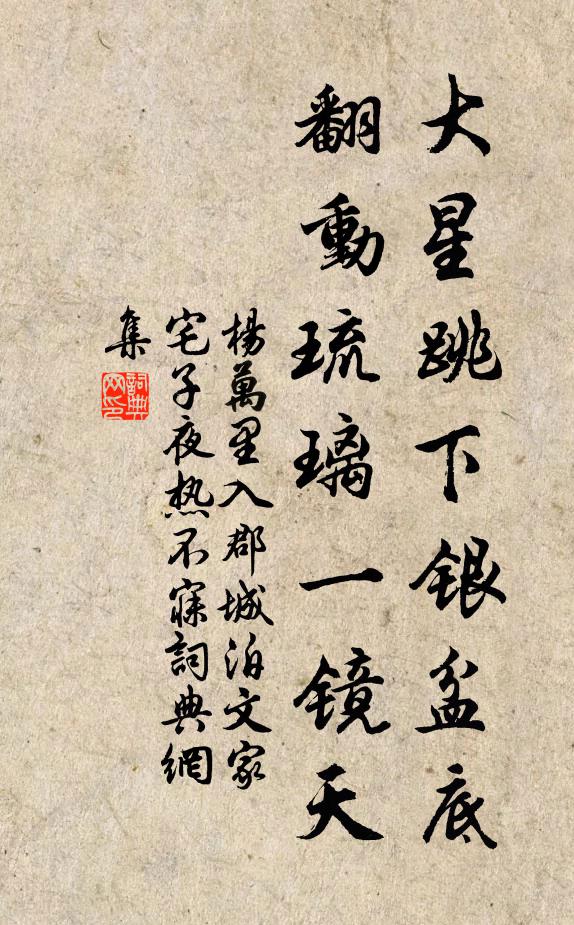 大星跳下银盆底
翻動琉璃一镜天
楊萬里入郡城泊文家
宅子夜热不寐詞典網
集
詞典
网印